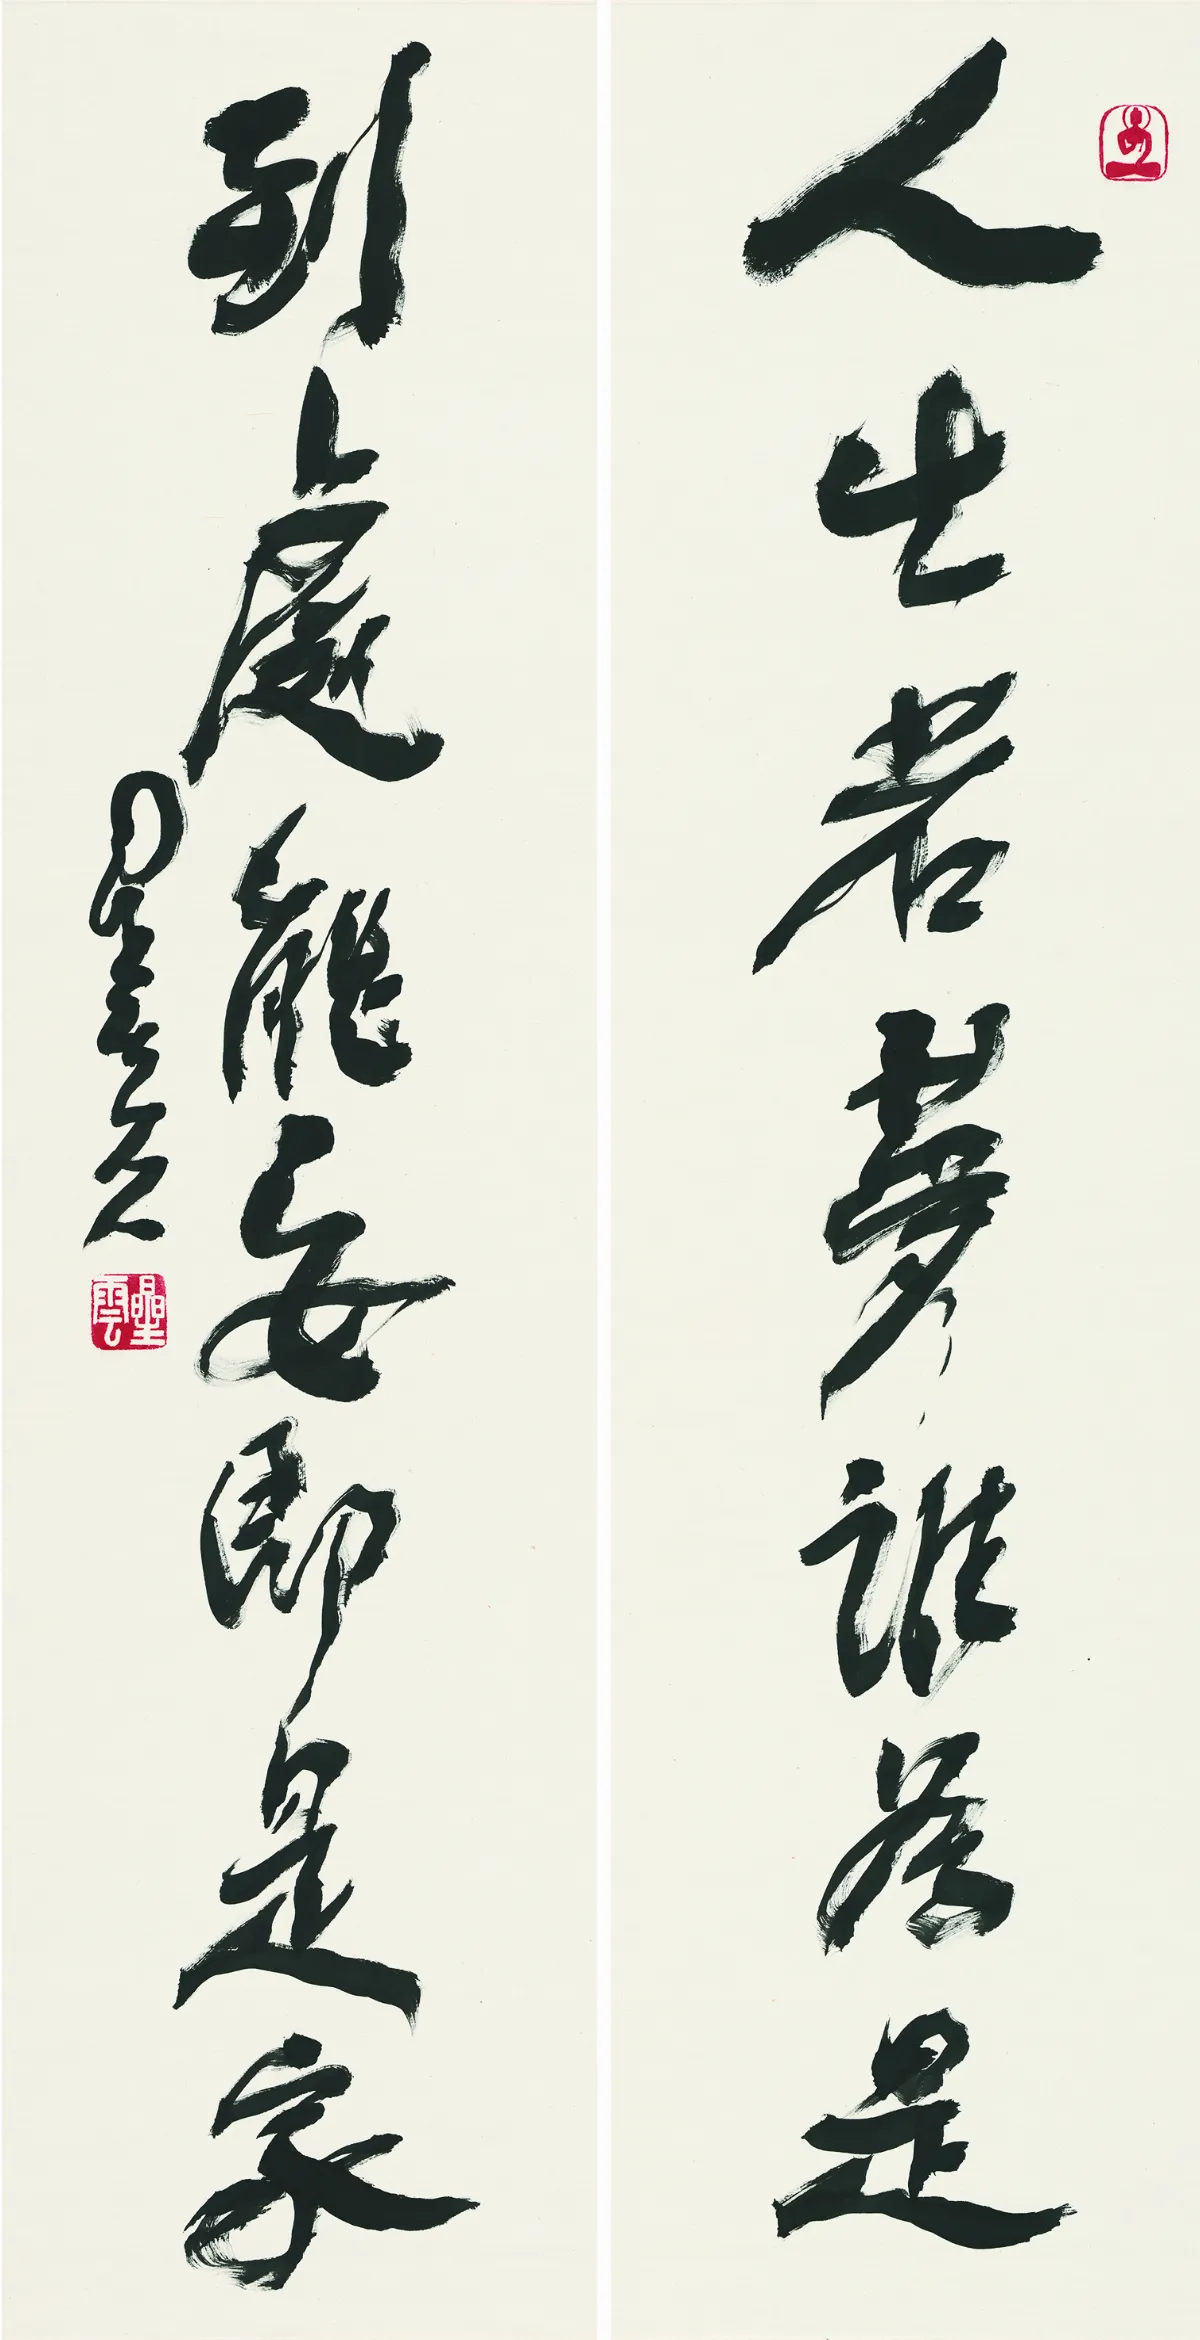 人生若夢誰為是
到處能安即是家
星雲
星雲